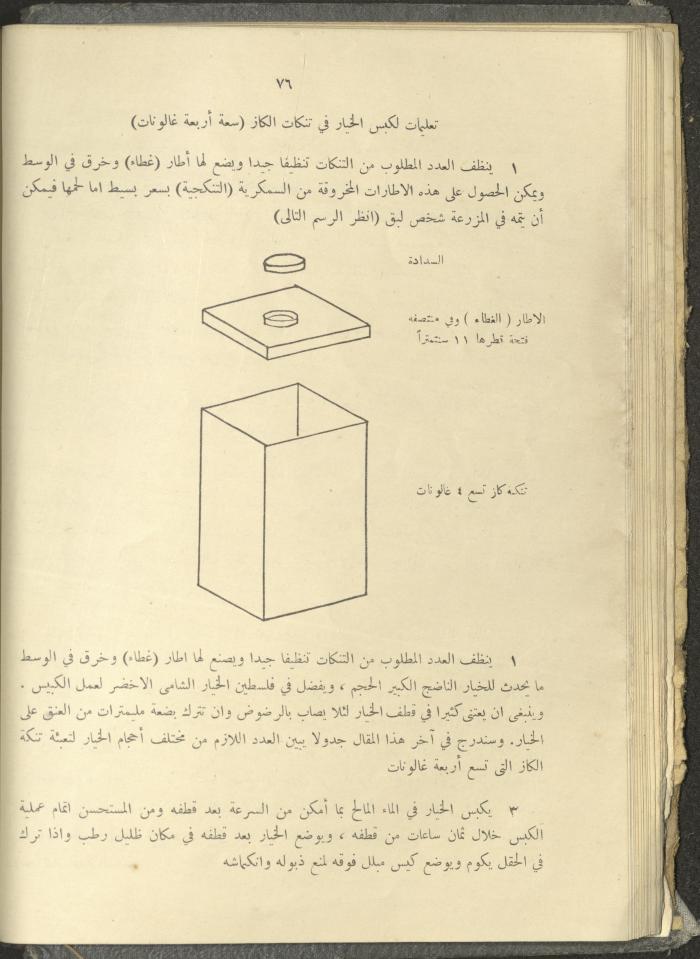 ٧٦
تعليمات لكبس الخيار في تنكات الكاز (سعة أربعة غالونات)
١ ينظف العدد المطلوب من التنكات تنظيفا جيدا ويضع لها أطار (غطاء) وخرق في الوسط
ويمكن الحصول على هذه الاطارات المخروقة من السمكرية (التنكجية) بسعر بسيط اما لحمها فيمكن
أن يتمه في المزرعة شخص لبق (انظر الرسم التالى)
السدادة
الاطار ( الغطاء ) وفي منتصفه
فتحة قطرها ١١ سنتمتراً
تنكة كاز تسع ٤ غالونات
١ ينظف العدد المطلوب من التنكات تنظيفا جيدا ويصنع لها اطار (غطاء) وخرق في الوسط
ما يحدث للخيار الناضج الكبير الحجم ، ويفضل في فلسطين الخيار الشامى الاخضر لعمل الكبيس .
وينبغى ان يعتنى كثيرا في قطف الخيار لئلا يصاب بالرضوض وان تترك بضعة مليمترات من العنق على
الخيار. وسندرج في آخر هذا المقال جدولا يبين العدد اللازم من مختلف أحجام الخيار لتعبئة تنكة
الكاز التى تسع أربعة غالونات
٣ يكبس الخيار في الماء المالح بما أمكن من السرعة بعد قطفه ومن المستحسن اتمام عملية
الكبس خلال ثمان ساعات من قطفه ، ويوضع الخيار بعد قطفه في مكان ظليل رطب واذا ترك
في الحقل يكوم ويوضع كيس مبلل فوقه لمنع ذبوله وانكماشه